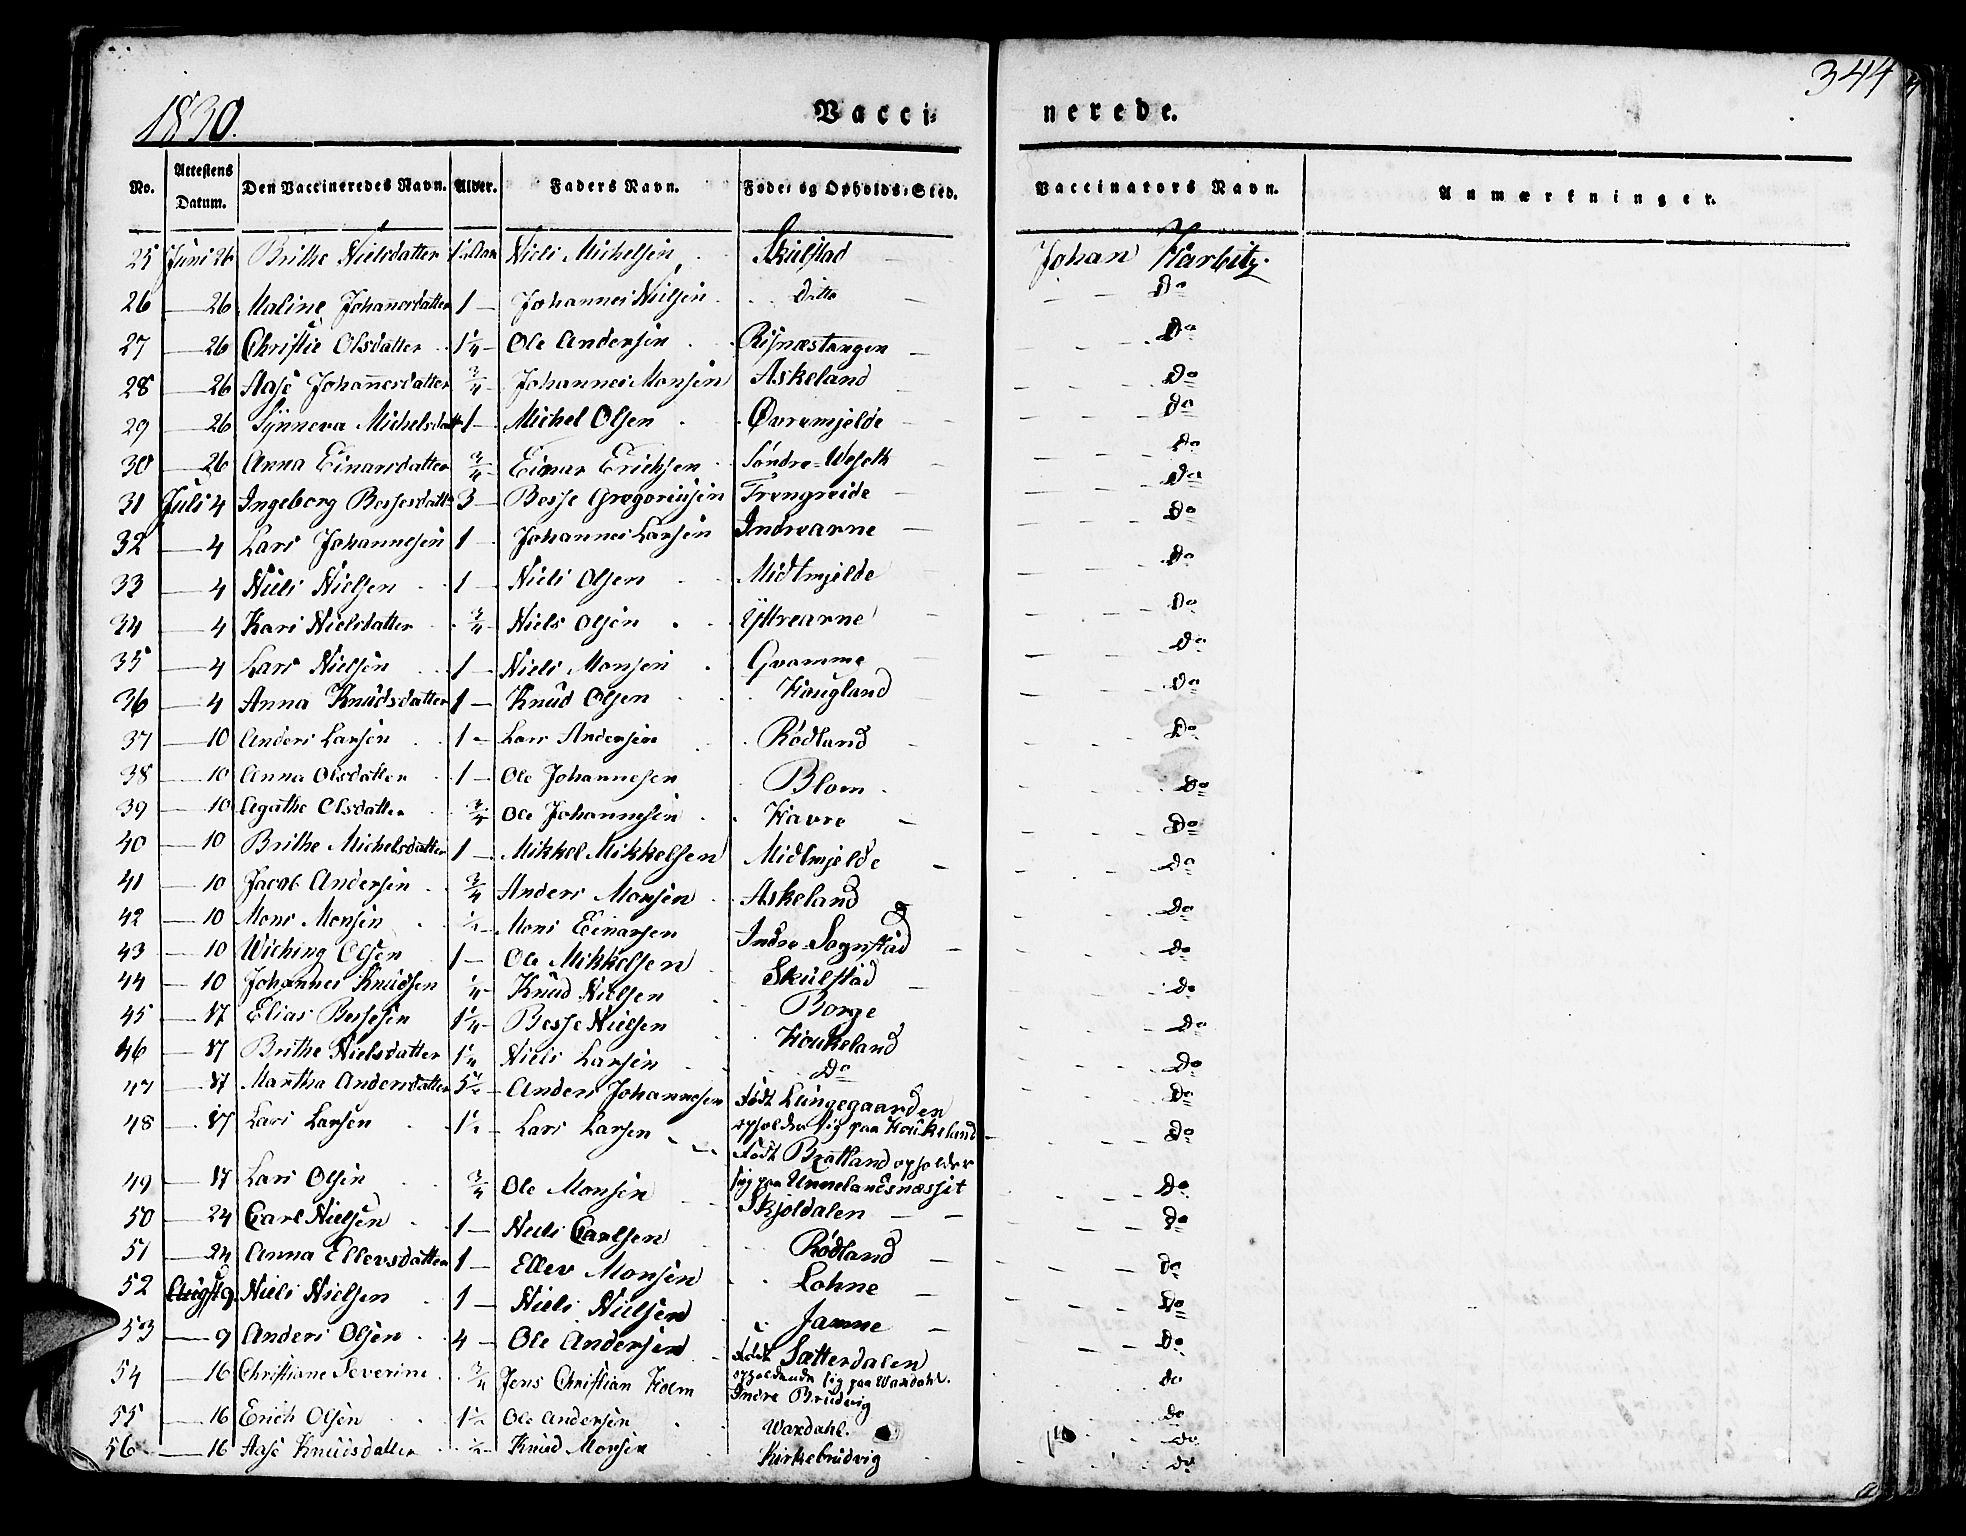 344
1830.
Vacci- nerede.
No. Attestens Datum. Den Vaccineredes Navn. Alder. Faders Navn. Føde- og Opholds-Sted. Vaccinators Navn. Anmærkninger.
25 Juni 26 Brithe Nielsdatter Niels Michelsen Skulstad Johan Harbitz.
26 — 26 Maline Johannesdatter 1 — Johannes Nielsen ditto — Do
27 — 26 Christie Olsdatter 1¼ — Ole Andersen Risnæstangen — Do
28 — 26 Aase Johannesdatter ¾ Johannes Monsen Askeland — Do
29 — 26 Synneva Michelsdatter 1 — Michel Olsen Øvremjelde — Do
30 — 26 Anna Einarsdatter ¾ — Einar Erichsen Søndre-Weseth Do
31 Juli 4 Ingeborg Bessesdatter 3 — Besse Gregoriusen Trengreide — Do
32 — 4 Lars Johannesen 1 — Johannes Larsen Indrearne — Do
33 — 4 Niels Nielsen 1 — Niels Olsen Midtmjelde Do
34 — 4 Kari Nielsdatter ¾ — Niels Olsen Yttrearne — Do
35 — 4 Lars Nielsen 1 — Niels Monsen Gvamme — Do
36 — 4 Anna Knudsdatter 1 — Knud Olsen Hougland — Do
37 — 10 Anders Larsen 1 — Lars Andersen Rødland — Do
38 — 10 Anna Olsdatter 1 — Ole Johannesen Blom Do
39 — 10 Agathe Olsdatter ¾ Ole Johannesen Havre — Do
40 — 10 Brithe Michelsdatter 1 — Mikkel Mikkelsen Midtmjelde — Do
41 — 10 Jacob Andersen ¾ Anders Monsen Askeland Do
42 — 10 Mons Monsen ½ — Mons Einarsen Indre-Sognstad — Do
43 — 10 Wiching Olsen 1 — Ole Mikkelsen Skulstad — Do
44 — 10 Johannes Knudsen ¼ — Knud Nielsen Borge Do
45 — 17 Elias Bessesen 1¼ — Besse Nielsen Houkeland Do
46 — 17 Brithe Nielsdatter Niels Larsen Do Do
47 — 17 Martha Andersdatter 5½ — Anders Johannesen Født Lungegaarden
opholder sig paa Houkeland — Do
48 — 17 Lars Larsen 1½ — Lars Larsen — Født Bratland opholder
sig paa Unnelandsnæsset Do
49 — 17 Lars Olsen ¾ Ole Monsen — Skjoldalen — — Do
50 — 24 Carl Nielsen 1 — Niels Carlsen Rødland — Do
51 — 24 Anna Ellevsdatter 1 — Ellev Monsen Lohne — Do
52 August 9 Niels Nielsen 1 — Niels Nielsen Jamne — Do
53 — 9 Anders Olsen 4 — Ole Andersen Født Sætterdalen
opholdende sig paa Wardahl. Do
54 — 16 Christiane Severine ¾ Jens Christian Holm Indre Brudvig Do
55 — 16 Erich Olsen 1½ — Ole Andersen Wardahl. Do
56 — 16 Aase Knudsdatter ½ — Knud Monsen Kirkebrudvig Do